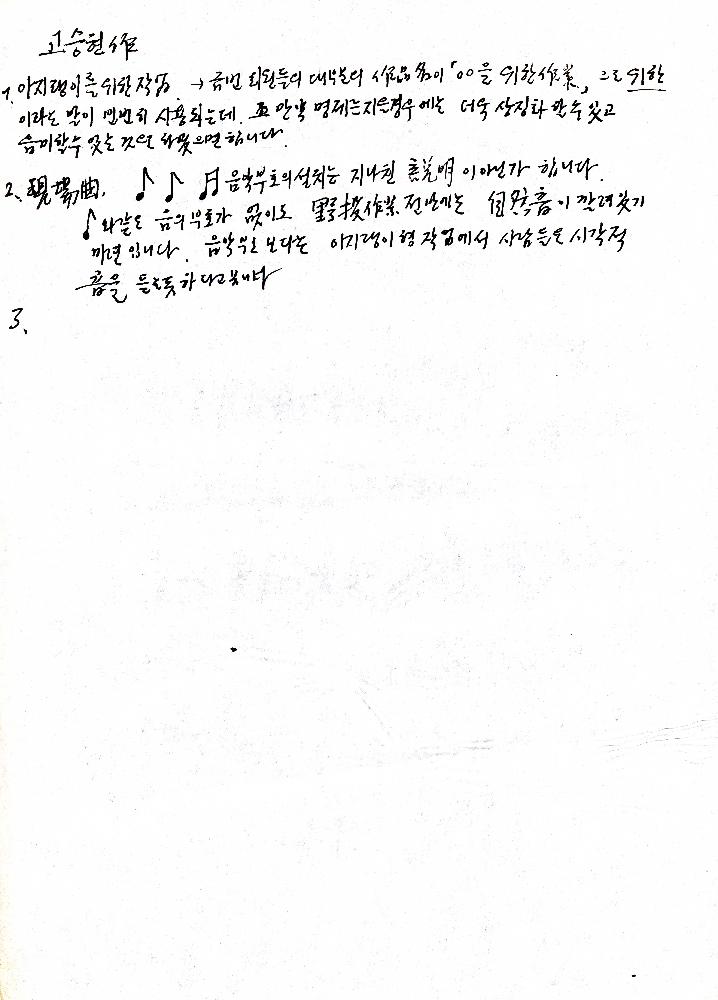 고승현 作
1. 아지랭이를 위한 작업 → 금번 회원들의 대부분의 作品名이 「○○을 위한 作業」, 으로 위한
이라는 말이 빈번히 사용되는데, 만약 명제는 지은경우에는 더욱 상징화 할수 있고
음미할수 있는 것으로 하였으면 합니다.
2. 現場曲. ♪ ♪ ♫ 음악부호의 설치는 지나친 說明이 아닌가 합니다.
♪와 같은 음의 부호가 없이도 野投作業 전반에는 自然音이 깔려있기
마련입니다. 음악부호 보다는 아지랭이형 작업에서 사람들은 시각적
音을 듣는듯 하다고 봅니다
3.